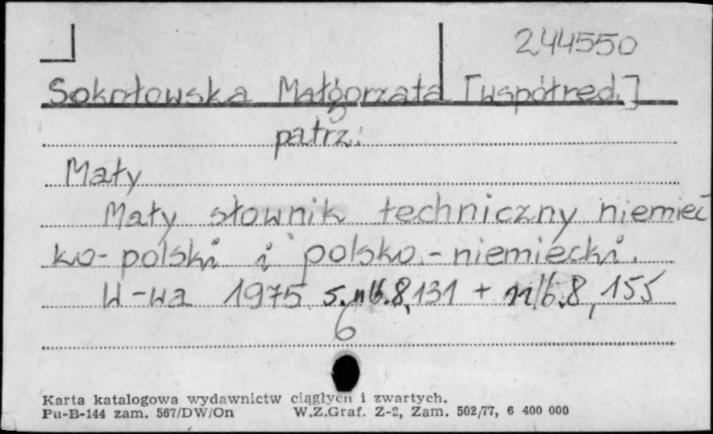 244550
Sokołowska Małgorzata [współred.]
patrz:
Mały
Mały słownik techniczny niemiec
ko-polski i polsko-niemiecki.
W-wa 1975 s. nlb. 8, 131 + nlb. 8, 155
6
Karta katalogowa wydawnictw ciągłych i zwartych.
Pu-B-144 zam. 567/DW/On W.Z.Graf. Z-2, Zam. 502/77, 6 400 000